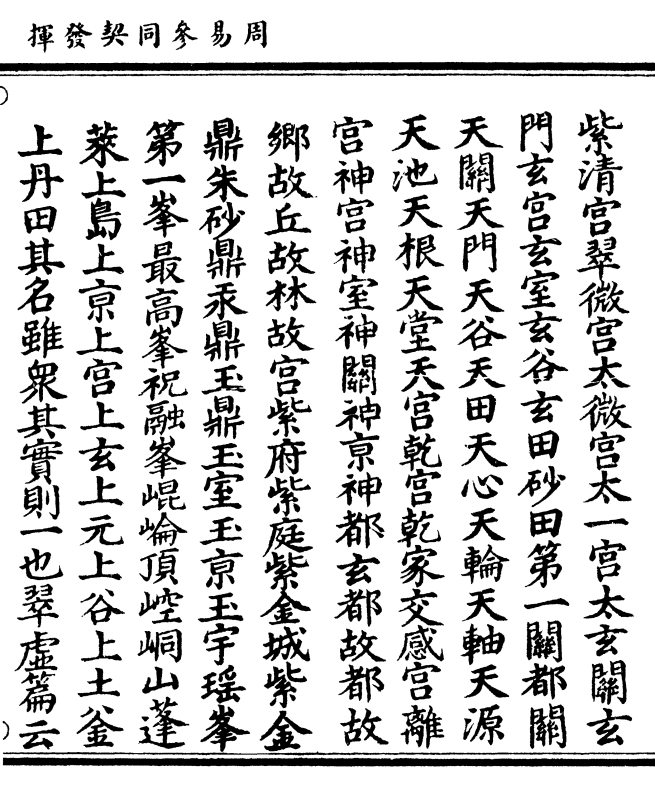 周易參同契發揮
紫清宫翠微宫太微宫太一宫太玄關玄
門玄宫玄室玄谷玄田砂田第一關都關
天關天門天谷天田天心天輪天軸天源
天池天根天堂天宫乾宫乾家交感宫離
宫神宫神室神關神亰神都玄都故都故
鄉故丘故林故宫紫府紫庭紫金城紫金
鼎朱砂鼎汞鼎玉鼎玉室玉亰玉宇瑶峯
第一峯最高峯祝融峯崐崘頂崆峒山蓬
萊上島上亰上宫上玄上元上谷上土釜
上丹田其名雖衆其實則一也翠虛篇云